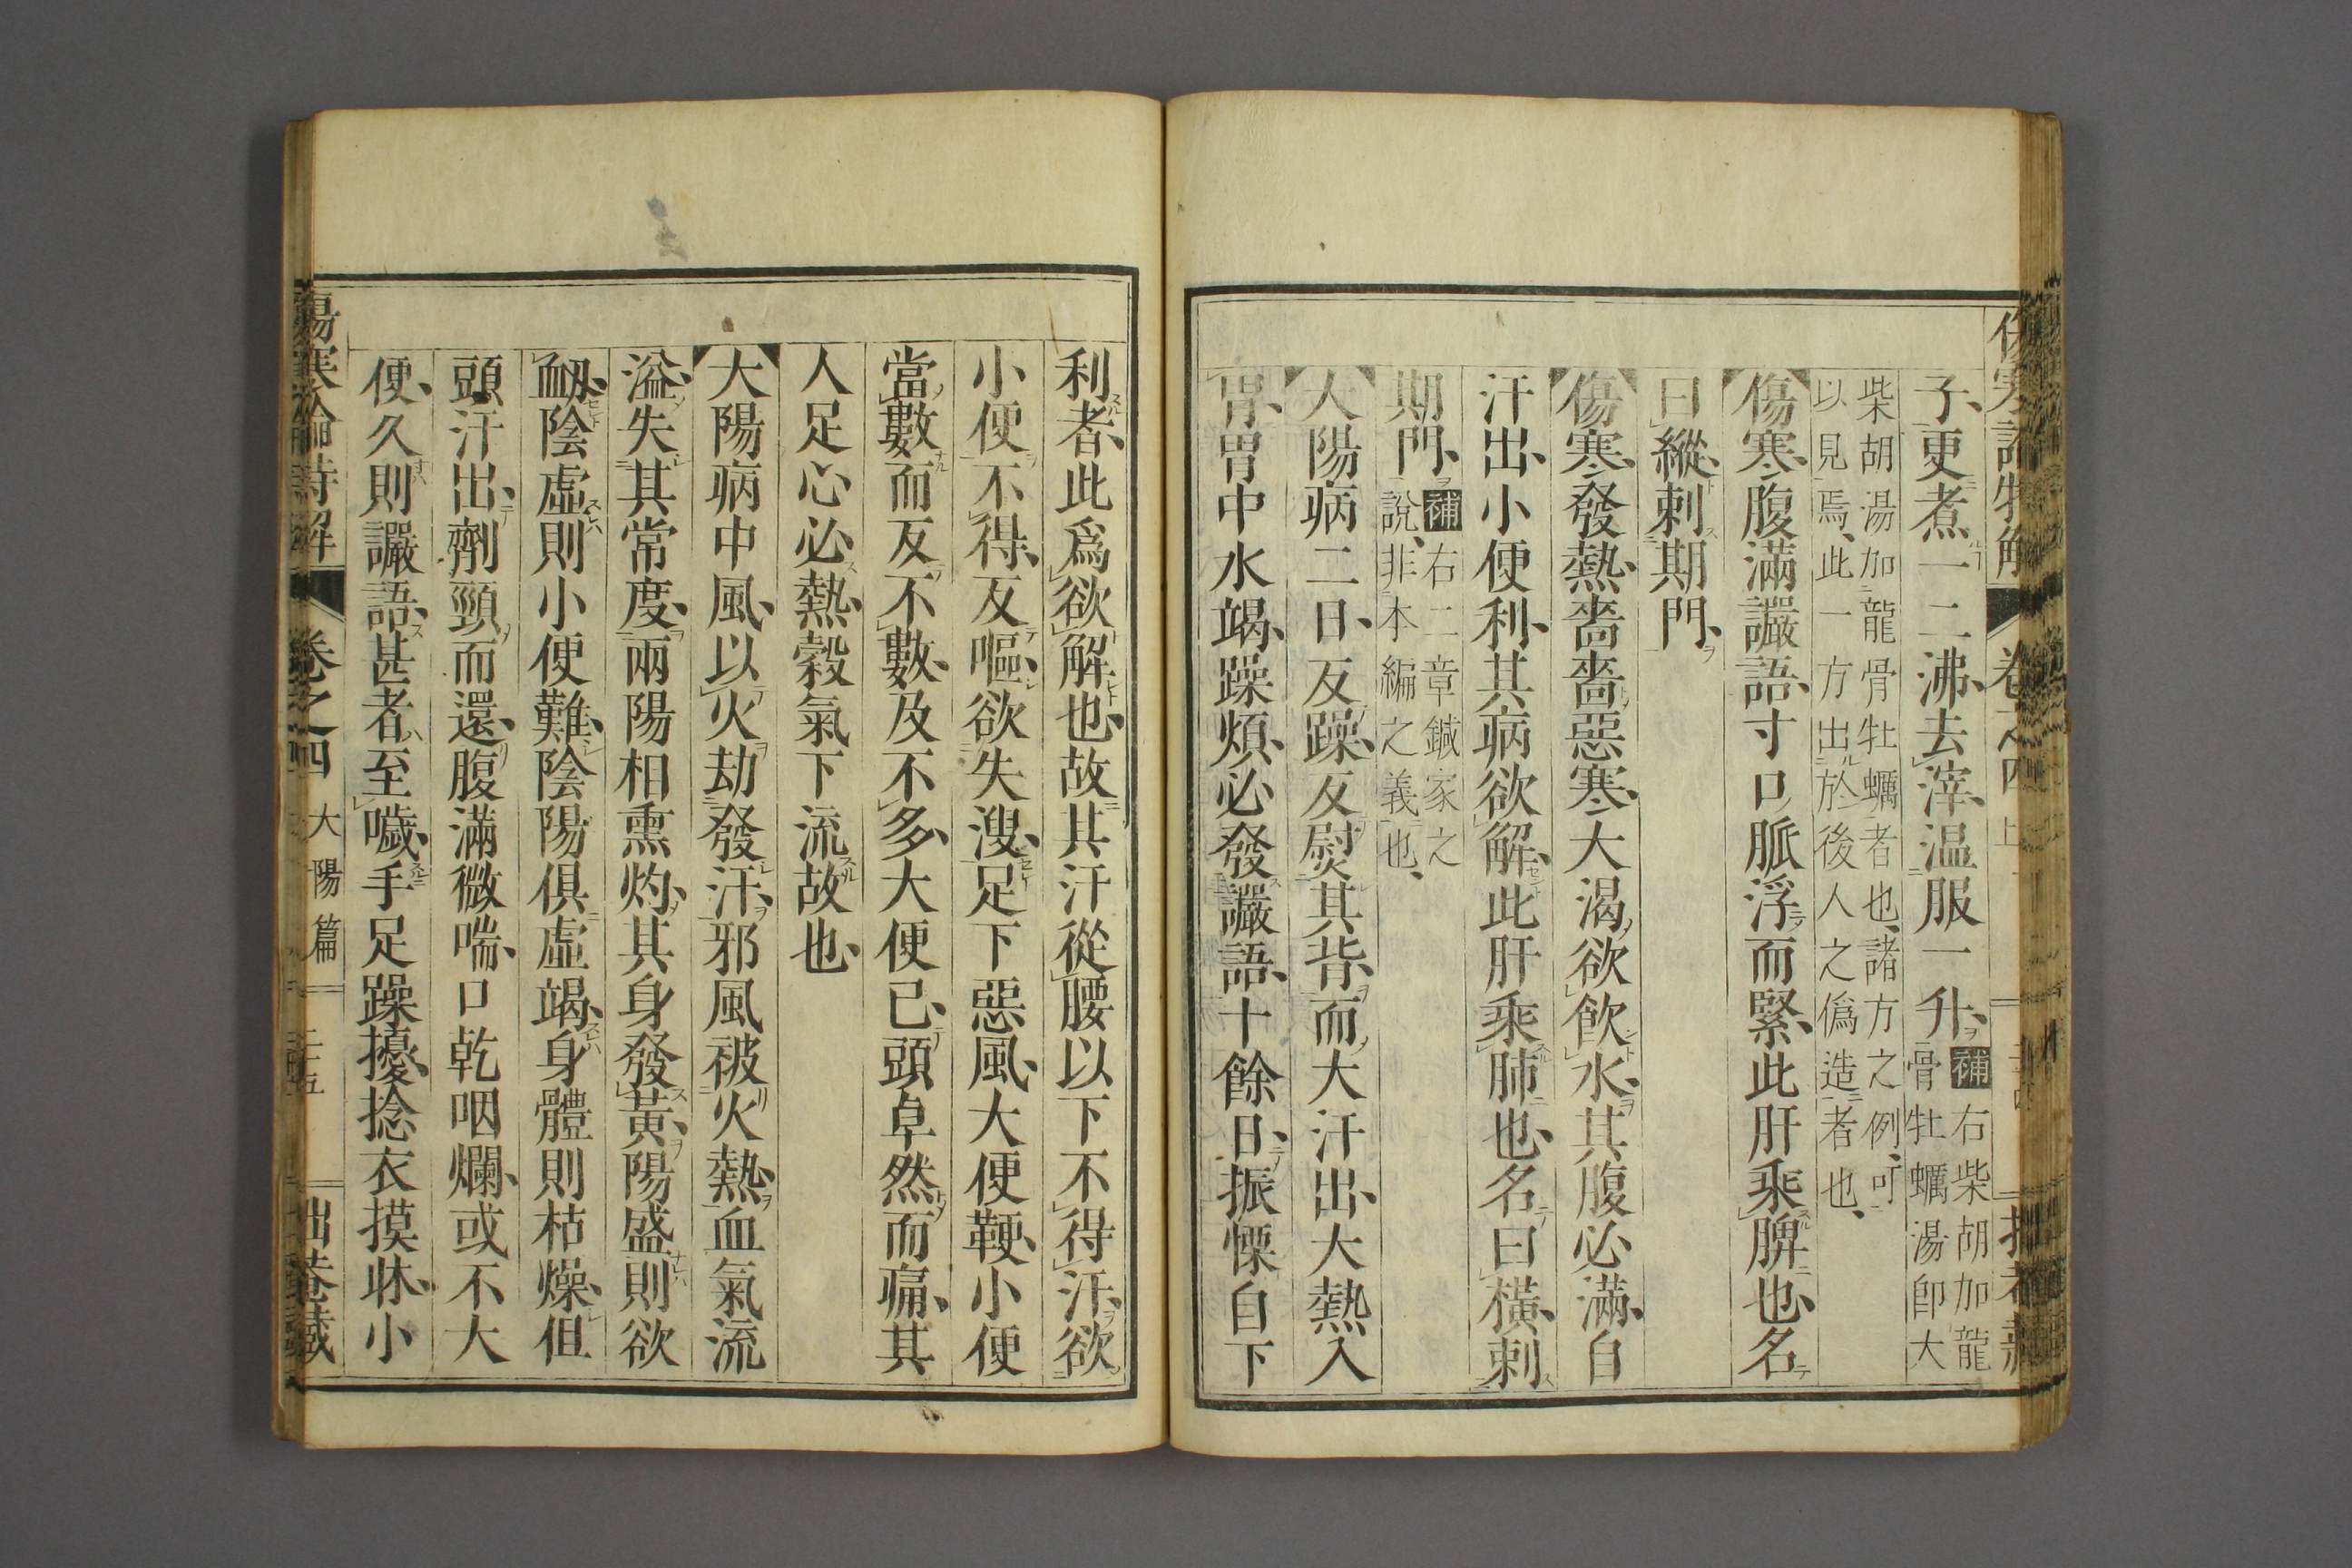 子、更煮一二沸、去滓、温服一升、補右柴胡加龍
骨牡蠣湯卽大
柴胡湯加龍骨牡蠣者也、諸方之例、可
以見焉、此一方出於後人之僞造者也、
傷寒、腹滿讝語、寸口脈浮而緊、此肝乘脾也、名
曰縱、刺期門、
傷寒、發熱、嗇嗇惡寒、大渴欲飮水、其腹必滿、自
汗出、小便利、其病欲解、此肝乘肺也、名曰橫、刺
期門、補右二章鍼家之
說、非本編之義也、
大陽病二日、反躁、反熨其背、而大汗出、大熱入
胃、胃中水竭、躁煩、必發讝語、十餘日、振慄自下
利者、此爲欲解也、故其汗從腰以下不得汗、欲
小便不得、反嘔、欲失溲、足下惡風、大便鞕、小便
當數而反不數、及不多、大便已、頭卓然而痛、其
人足心必熱、穀氣下流故也、
大陽病中風、以火劫發汗、邪風被火熱、血氣流
溢、失其常度、兩陽相熏灼、其身發黃、陽盛則欲
衂、陰虛則小便難、陰陽俱虛竭、身體則枯燥、但
頭汗出、劑頸而還、腹滿微喘、口乾咽爛、或不大
便、久則讝語、甚者至噦、手足躁擾、捻衣摸牀、小
傷寒論特解
卷之四
大陽篇
二十五